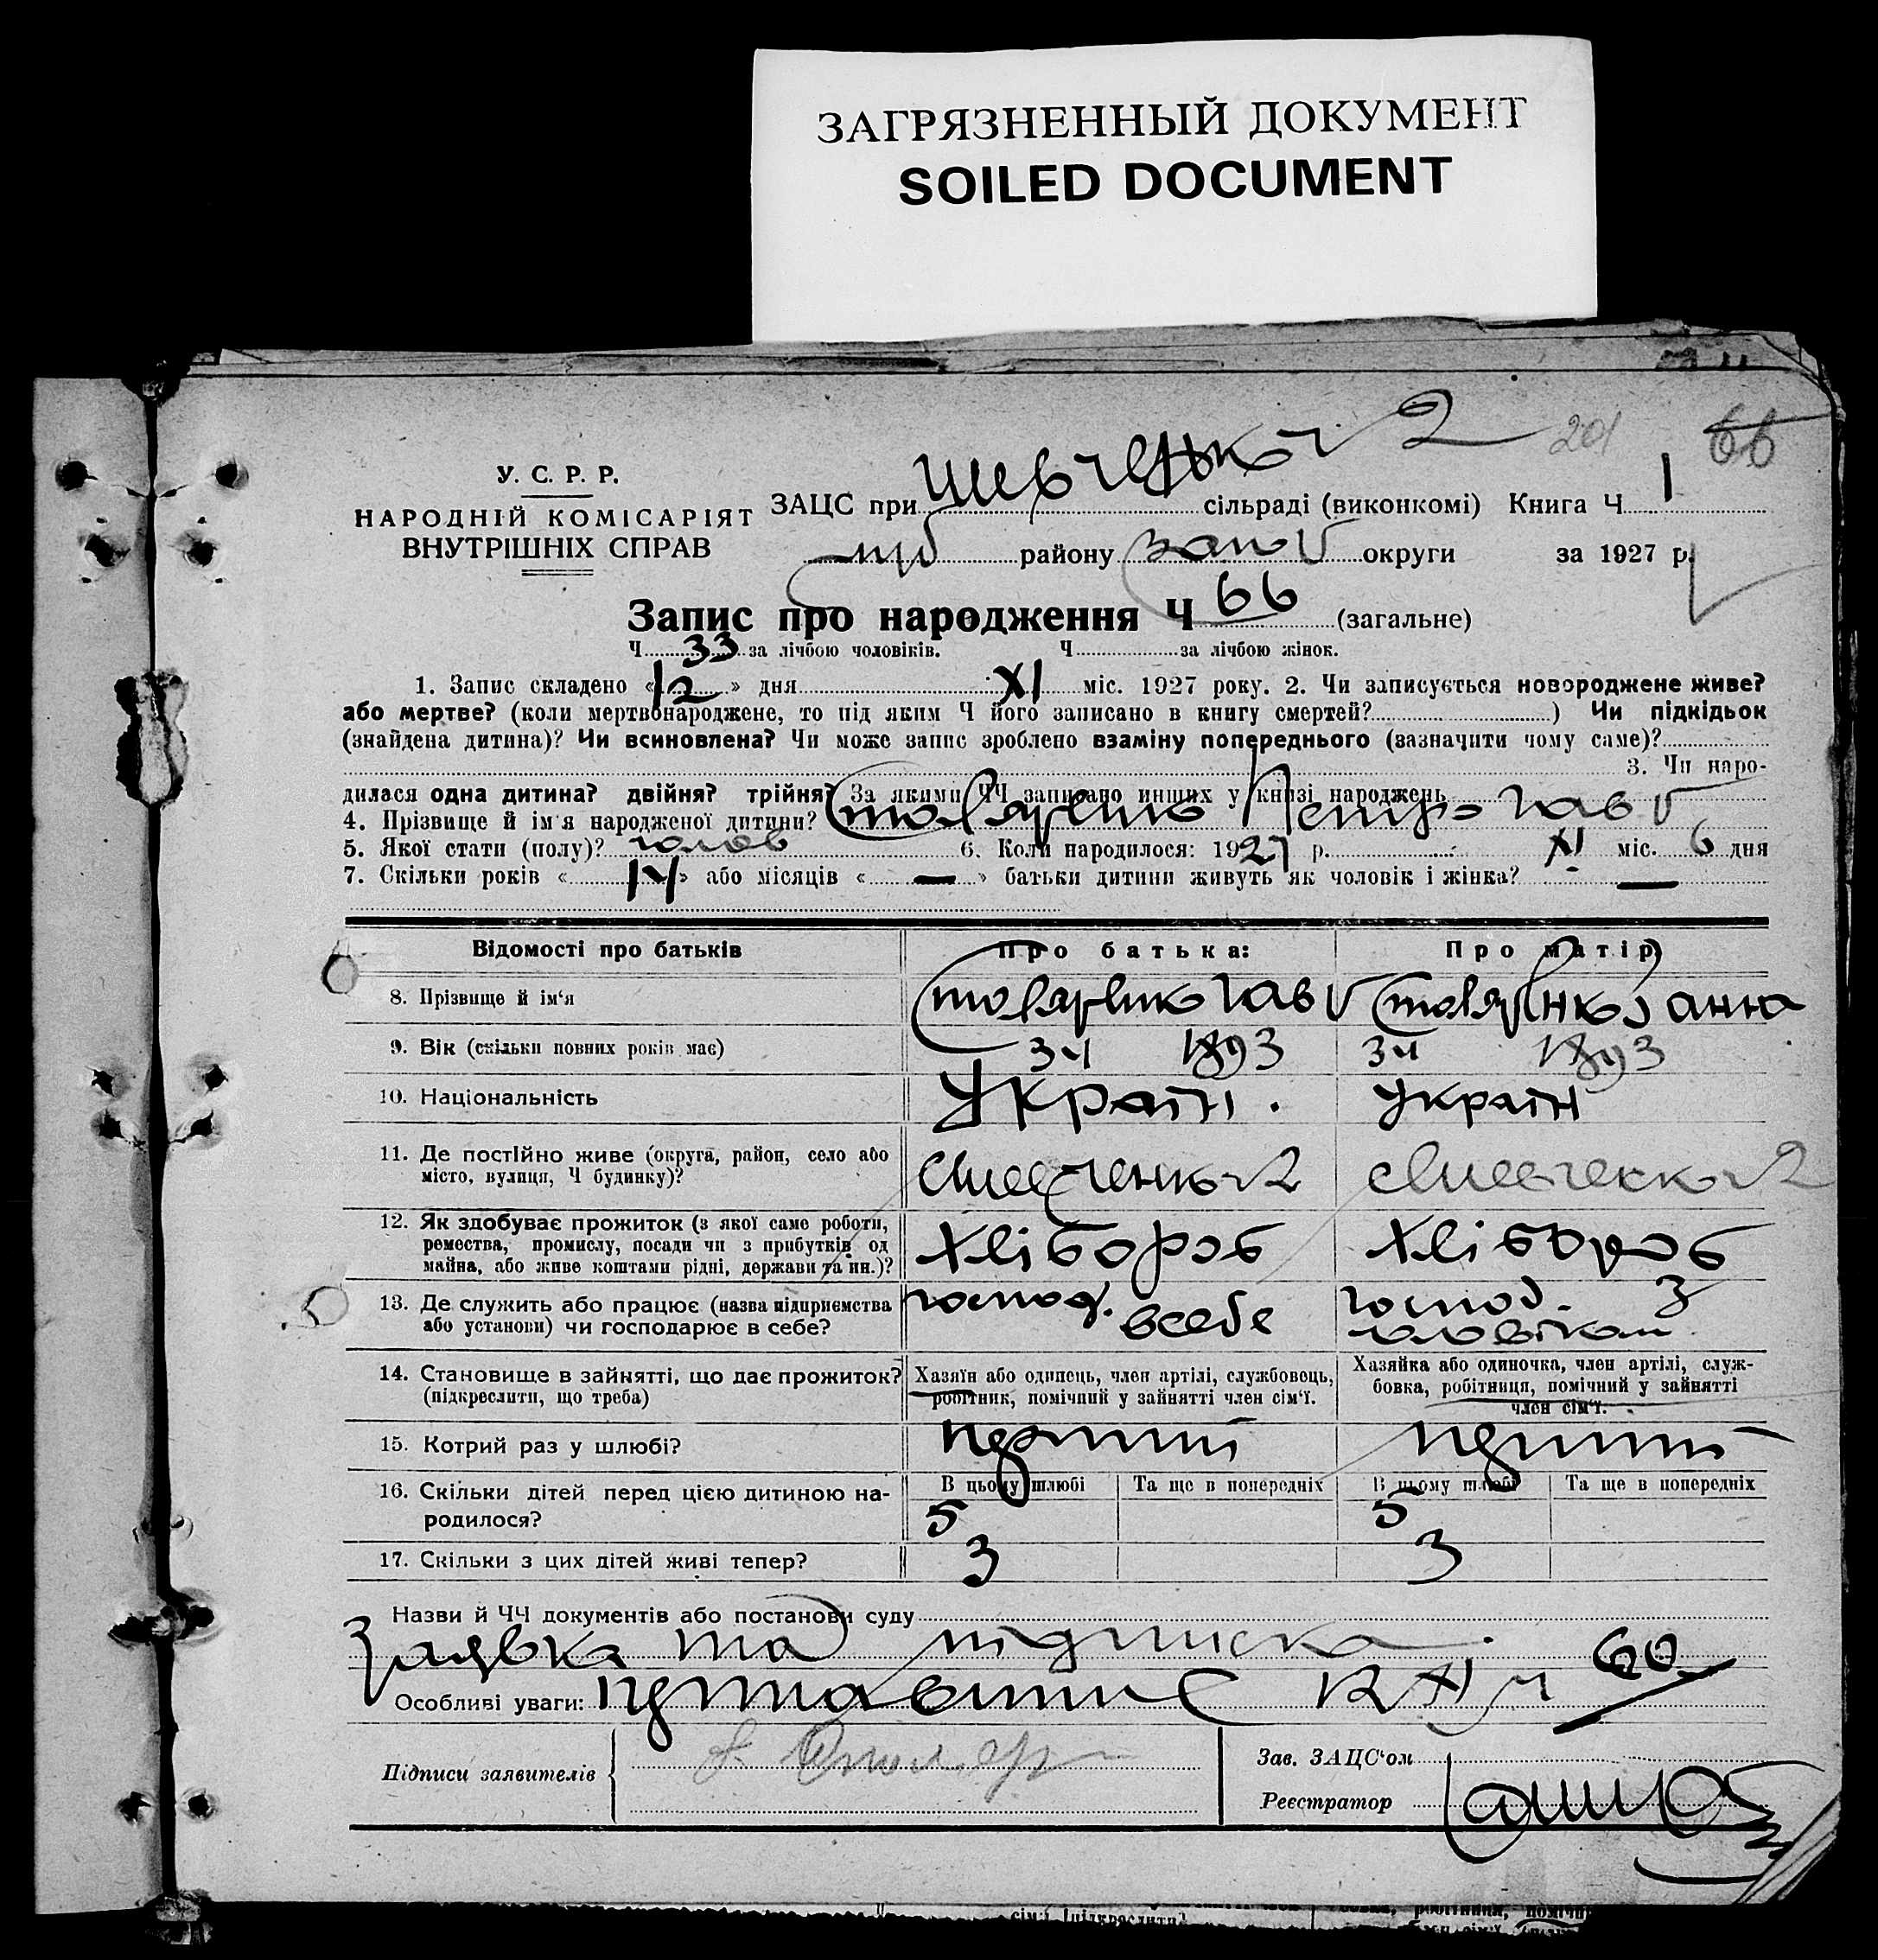 ЗАГРЯЗНЕННЫЙ ДОКУМЕНТ
SOILED DOCUMENT
201 66
У. С. Р. Р.
НАРОДНІЙ КОМІСАРІЯТ
ВНУТРІШНІХ СПРАВ
ЗАЦС при Шевченк 2 сільраді (виконкомі) Книга Ч 1
району Запо округи за 1927 р.
Запис про народження Ч 66 (загальне)
Ч 33 за лічбою чоловіків. Ч за лічбою жінок.
1. Запис складено «12» дня XI міс. 1927 року. 2. Чи записується новороджене живе?
або мертве? (коли мертвонароджене, то під яким Ч його записано в книгу смертей? ) Чи підкідьок
(знайдена дитина)? Чи всиновлена? Чи може запис зроблено взаміну попереднього (зазначити чому саме)?
3. Чи наро-
дилася одна дитина? двійня? трійня? За якими ЧЧ записано инших у книзі народжень
4. Прізвище й ім'я народженої дитини? Петро Гав
5. Якої стати (полу)? чолов 6. Коли народилося: 1927 р. XI міс. 6 дня
7. Скільки років «14» або місяців « — » батьки дитини живуть як чоловік і жінка? —
Відомості про батьків Про батька: Про матір
8. Прізвище й ім'я Гав Анна
9. Вік (скільки повних років має) 34 1893 34 1893
10. Національність Україн. Україн
11. Де постійно живе (округа, район, село або
місто, вулиця, Ч будинку)? Шевченко 2 Шевченко 2
12. Як здобуває прожиток (з якої саме роботи,
ремества, промислу, посади чи з прибутків од
майна, або живе коштами рідні, держави та ин.)? Хлібороб Хлібороб
13. Де служить або працює (назва підприємства
або установи) чи господарює в себе? господ. всебе господ. з
чоловіком
14. Становище в зайнятті, що дає прожиток?
(підкреслити, що треба)
Хазяїн або одинець, член артілі, службовець,
робітник, помічний у зайнятті член сім'ї.
Хазяйка або одиночка, член артілі, служ-
бовка, робітниця, помічний у зайнятті
член сім'ї.
15. Котрий раз у шлюбі? перший перший
16. Скільки дітей перед цією дитиною на-
родилося?
В цьому шлюбі Та ще в попередніх В цьому шлюбі Та ще в попередніх
5 5
17. Скільки з цих дітей живі тепер? 3 3
Назви й ЧЧ документів або постанови суду
Заявка та підписка
Особливі уваги: 60
Підписи заявителів
Зав. ЗАЦС'ом
Реєстратор